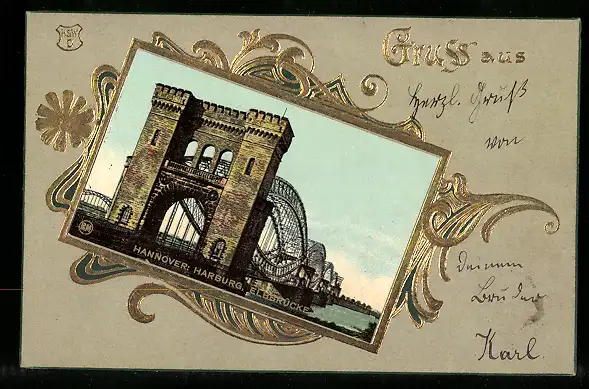 GRUSS aus
Herzl. Gruß
von
deinem
Bruder
Karl.
HANNOVER: HARBURG, ELBBRÜCKE